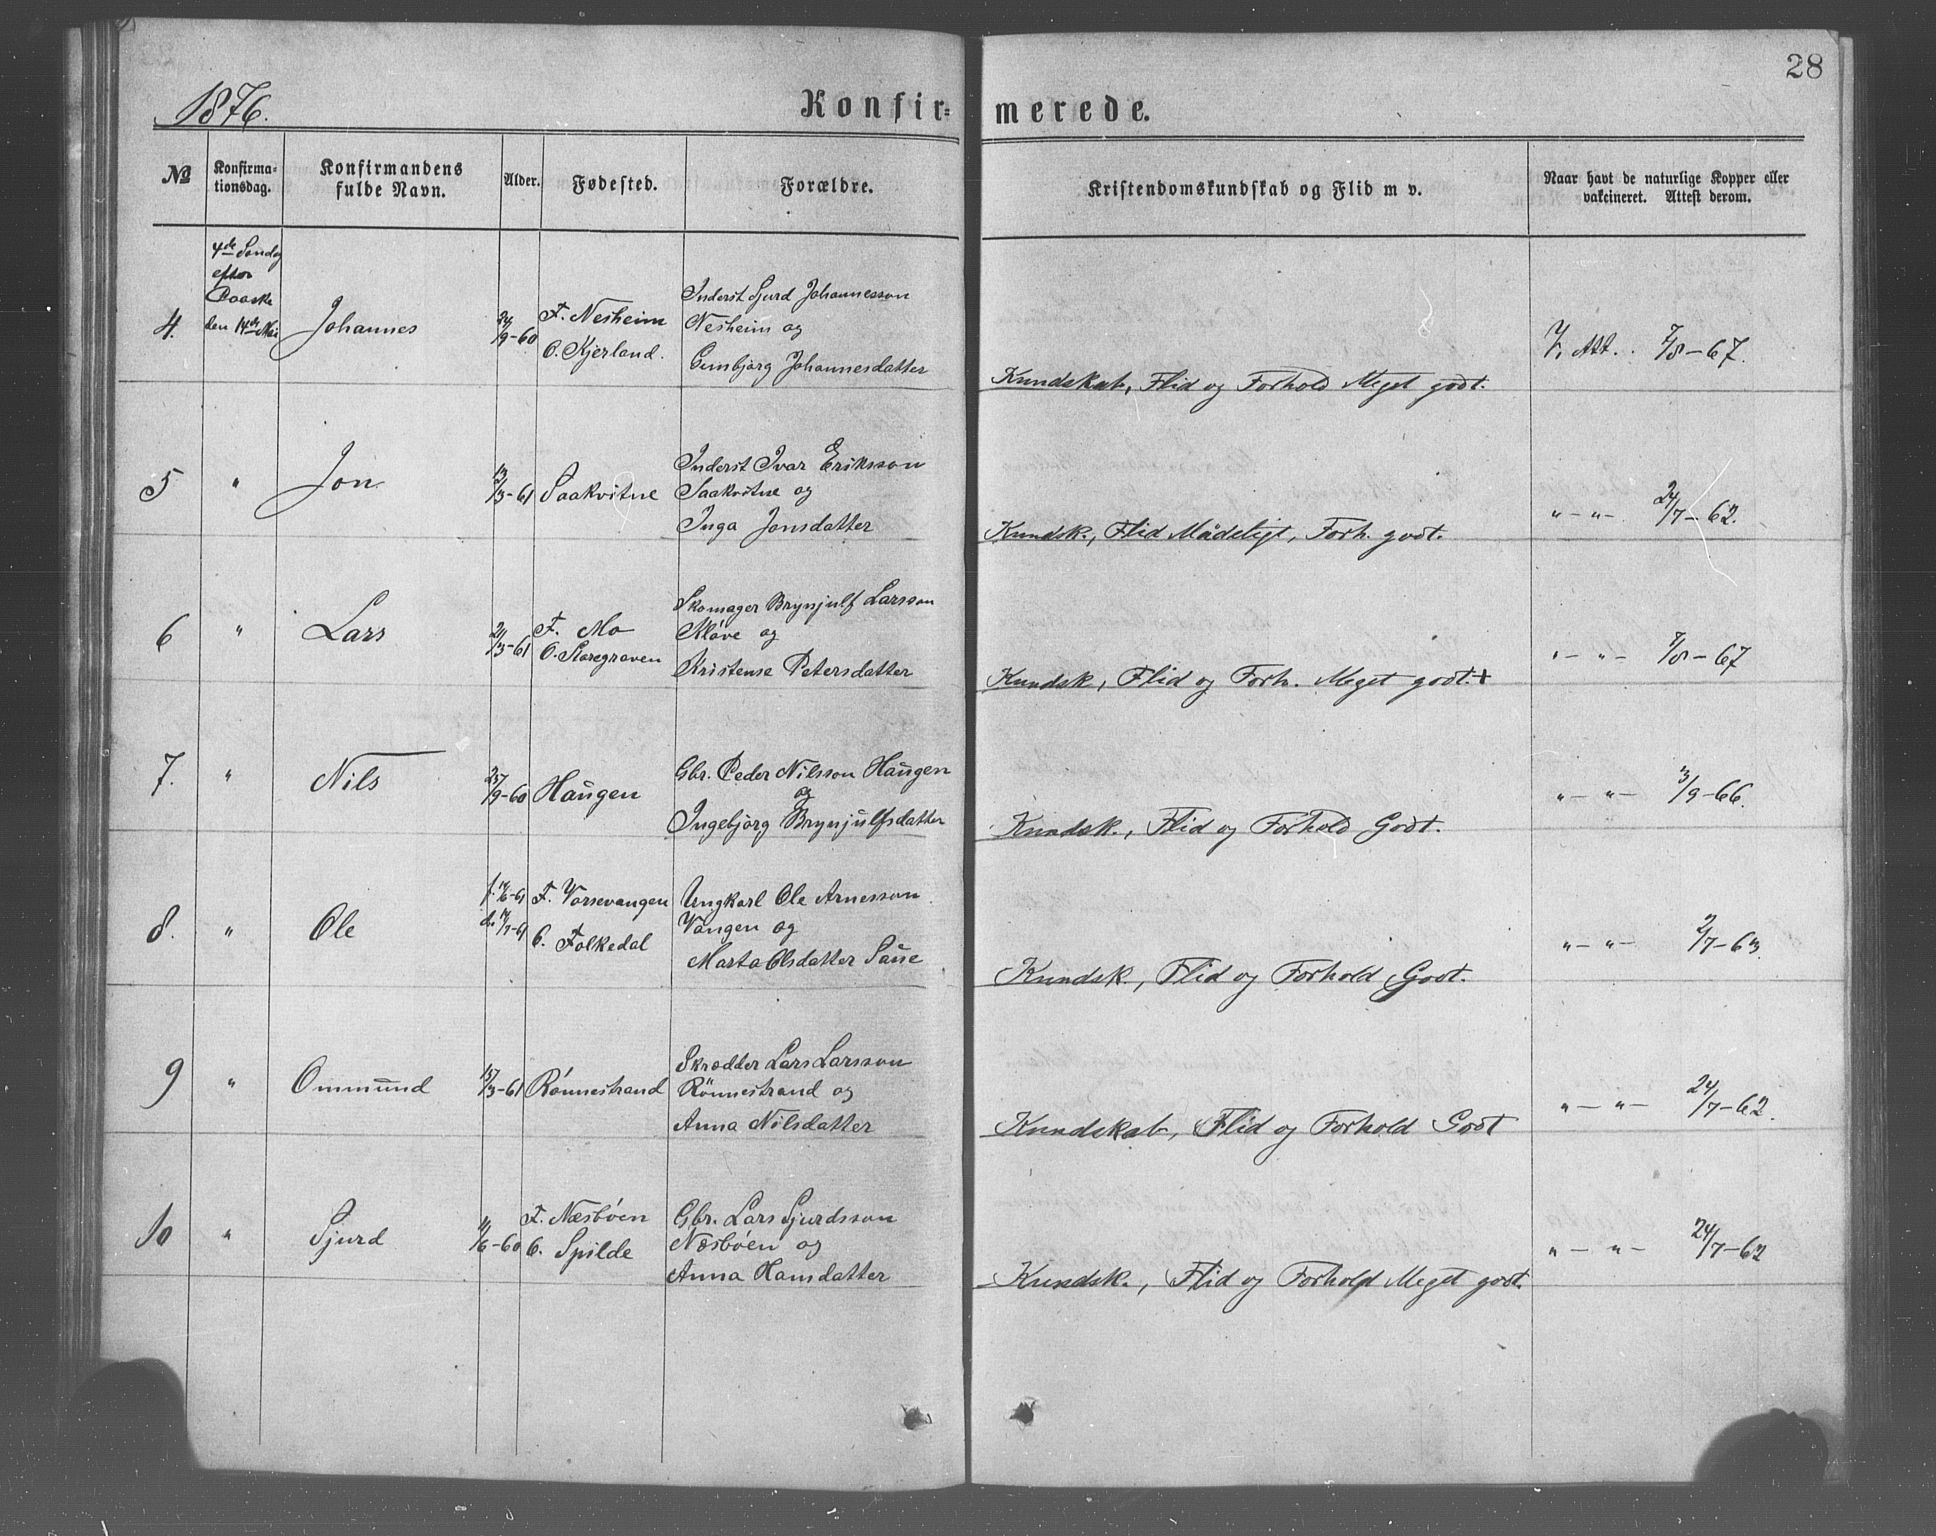 28
1876.
Konfir= merede.
No
Konfirma=
tionsdag.
Konfirmandens
fulde Navn.
Alder.
Fødested.
Forældre.
Kristendomskundskab og Flid m v.
Naar havt de naturlige Kopper eller
vakcineret. Attest derom.
4de Søndag
efter
Paaske
den 14de Mai
4. Johannes 24/9-60
F. Nesheim
O. Kjerland.
Inderst Sjurd Johannesson
Nesheim og
Gunbjørg Johannesdatter
Kundskab, Flid og Forhold Meget godt.
V. Att. 7/8-67.
5 " Jon 13/3-61 Saakvitne
Inderst Ivar Eriksson
Saakvitne og
Inga Jonsdatter
Kundsk., Flid Mådeligt, Forh. godt.
"-"- 24/7-62.
6 " Lars 21/3-61
F. Mo
O. Storegraven
Skomager Brynjulf Larsson
Kløve og
Kristense Petersdatter
Kundsk, Flid og Forh. Meget godt.+
"-"- 7/8-67
7. " Nils 25/9-60 Haugen
Gbr. Peder Nilsson Haugen
og
Ingebjørg Brynjulfsdatter
Kundsk., Flid og Forhold Godt.
"-"- 3/9-66.
8. " Ole
F. Vorsevangen
O. Folkedal
Ungkarl Ole Arnesson
Vangen og
Marta Olsdatter Saue
Kundsk., Flid og Forhold Godt.
"-"- 2/7-63.
9 " Ommund 15/3-61 Rönnestrand
Skrædder Lars Larsson
Rönnestrand og
Anna Nilsdatter
Kundskab, Flid og Forhold Godt
"-"- 24/7-62.
10 " Sjurd 11/6-60
F. Næsbøen
O. Spilde
Gbr. Lars Sjurdsson
Næsbøen og
Anna Hansdatter
Kundsk., Flid og Forhold Meget godt.
"-"- 24/7-62